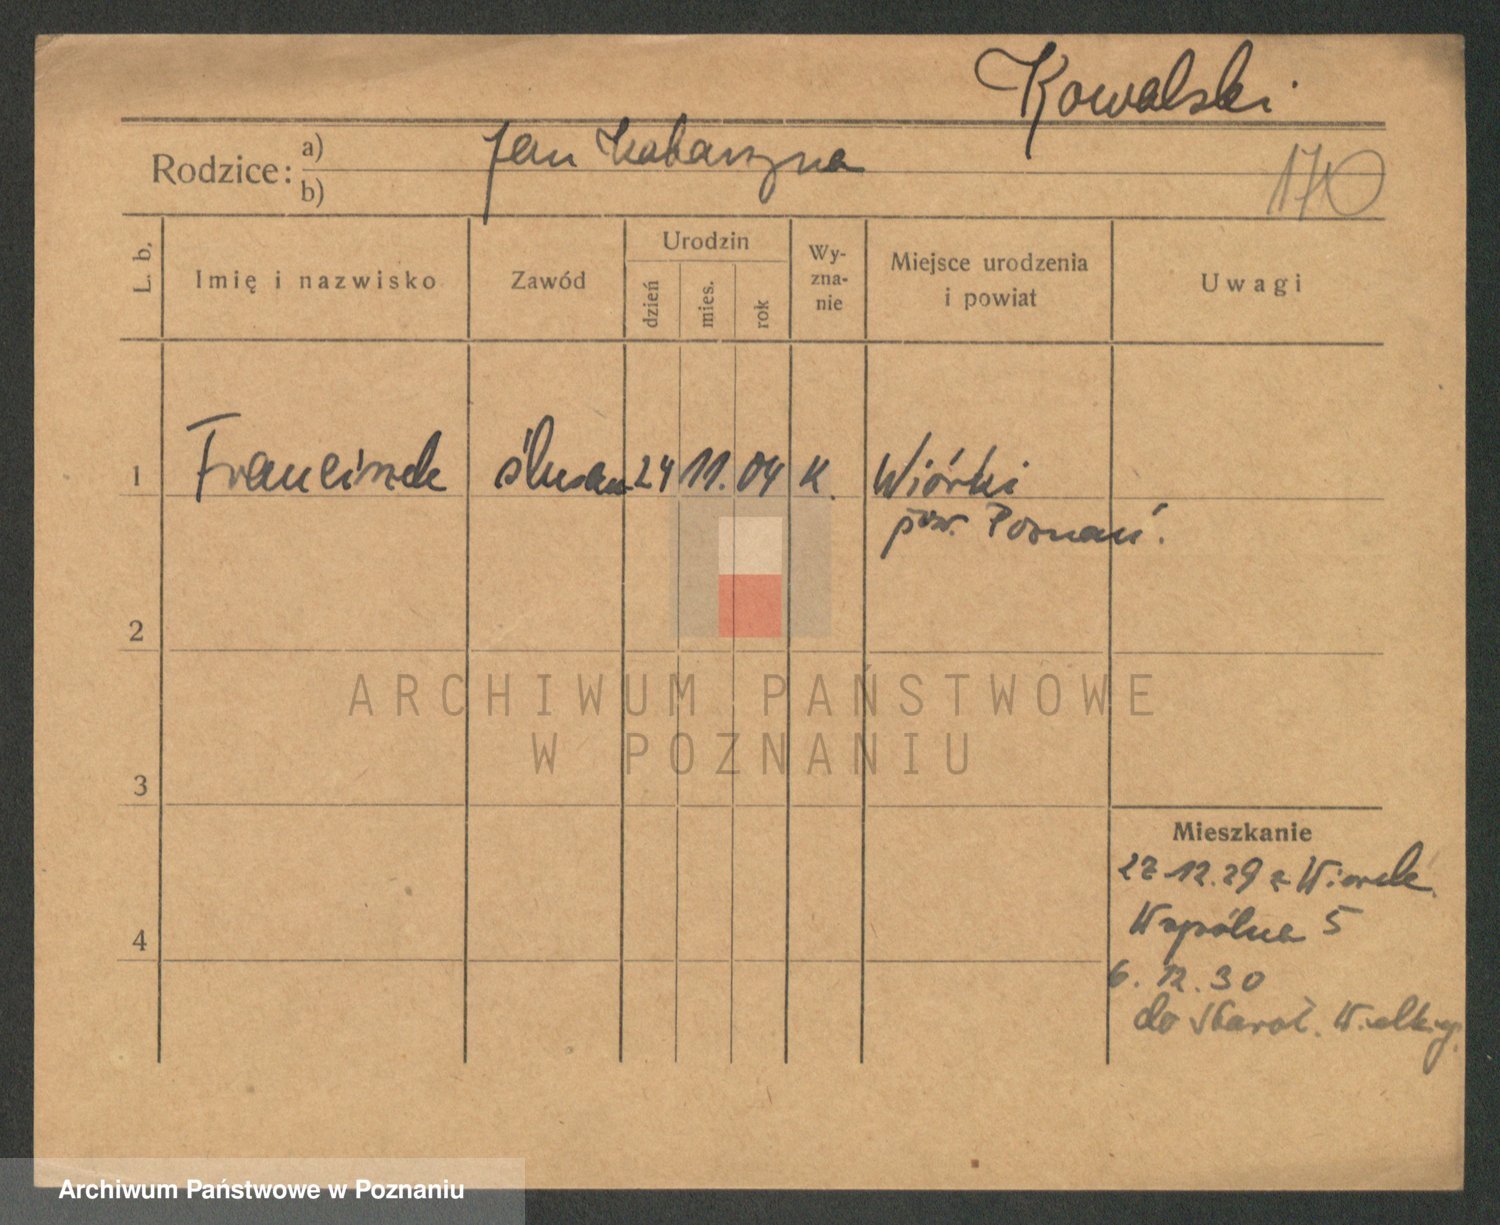 Kowalski
Rodzice: a) Jan Katarzyna
b)
170
L. b.
Imię i nazwisko
Zawód
Urodzin
dzień
mies.
rok
Wy-
zna-
nie
Miejsce urodzenia
i powiat
Uwagi
1 Franciszek ślusarz 24 11. 04 K. Wiórki
pow. Poznań.
2
3
4
Mieszkanie
27 12.29 z Wiorek
Wspólna 5
6. 12. 30
do Staroł. Wielkiej.
ARCHIWUM PAŃSTWOWE
W POZNANIU
Archiwum Państwowe w Poznaniu